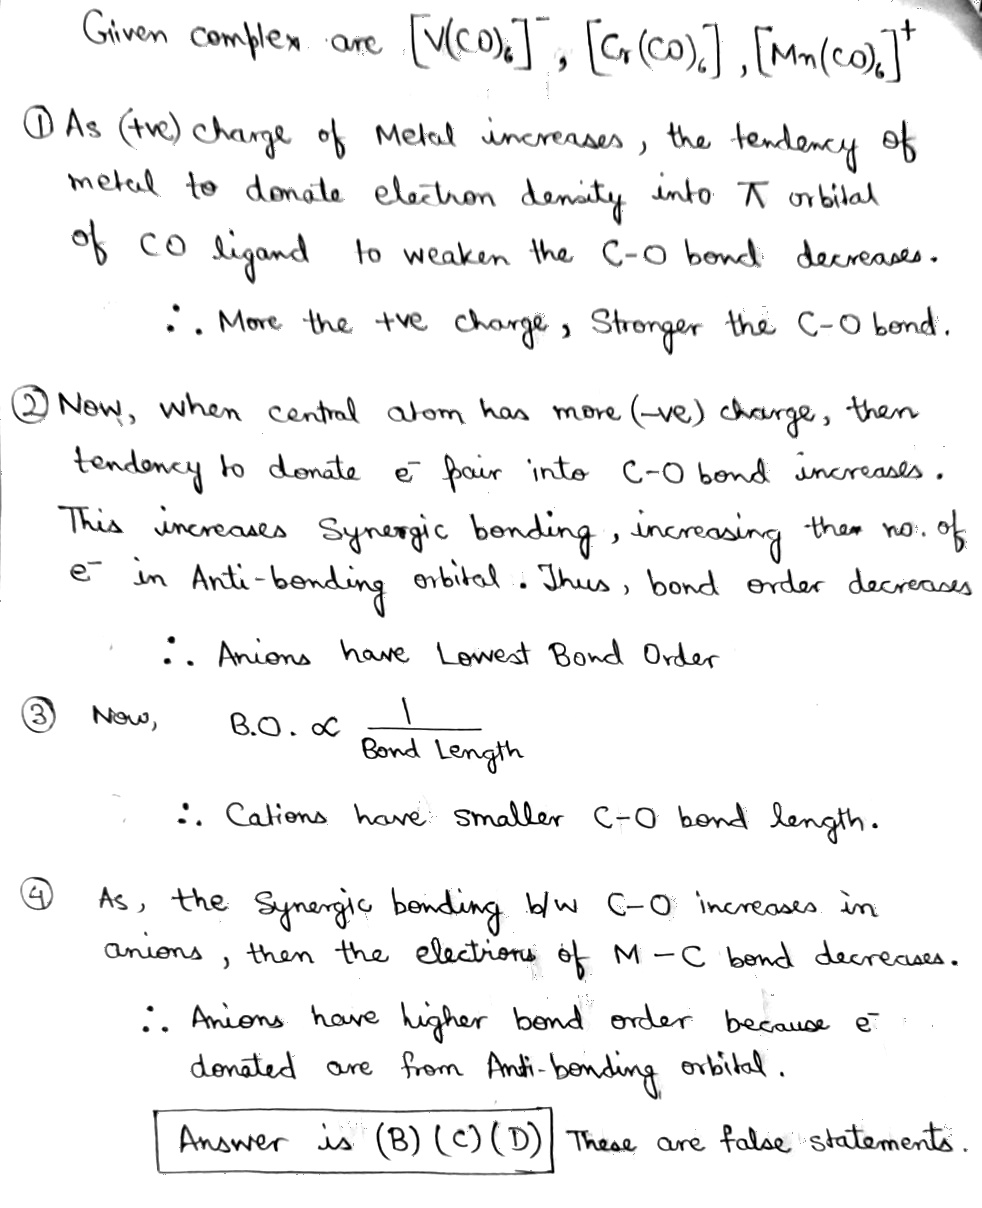 Given complex are [V(CO)₆]⁻, [Cr(CO)₆], [Mn(CO)₆]⁺
① As (+ve) charge of Metal increases, the tendency of
metal to donate electron density into π orbital
of CO ligand to weaken the C-O bond decreases.
∴ More the +ve charge, Stronger the C-O bond.
② Now, when central atom has more (-ve) charge, then
tendency to donate e⁻ pair into C-O bond increases.
This increases Synergic bonding, increasing the no. of
e⁻ in Anti-bonding orbital. Thus, bond order decreases
∴ Anions have Lowest Bond Order
③ Now, B.O. ∝ 1/Bond Length
∴ Cations have smaller C-O bond length.
④ As, the Synergic bonding b/w C-O increases in
anions, then the electrons of M-C bond decreases.
∴ Anions have higher bond order because e⁻
donated are from Anti-bonding orbital.
Answer is (B) (C) (D) These are false statements.